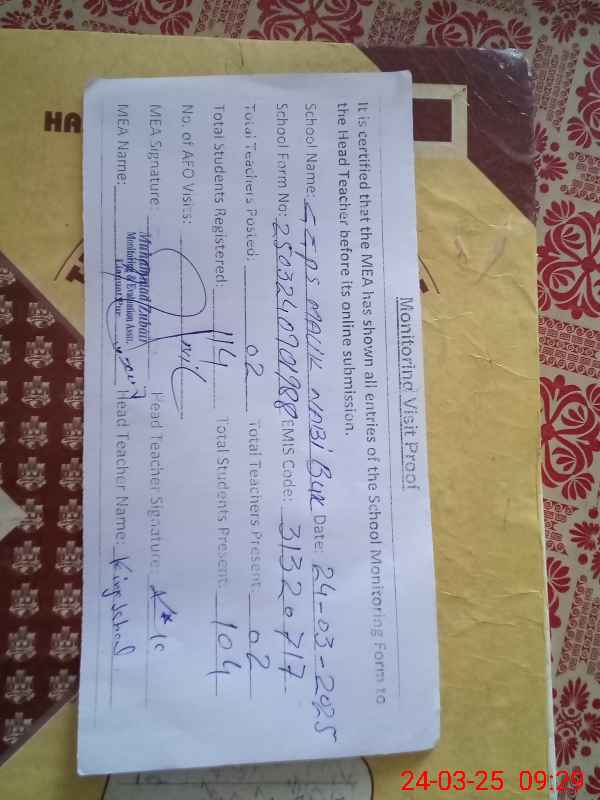 Monitoring Visit Proof
It is certified that the MEA has shown all entries of the School Monitoring Form to
the Head Teacher before its online submission.
School Name: GGPS MALIK NABI Bux Date: 24-03-2025
School Form No: EMIS Code: 31320717
Total Teachers Posted: 02 Total Teachers Present: 02
Total Students Registered: 114 Total Students Present: 104
No. of AEO Visits:
MEA Signature: Head Teacher Signature:
MEA Name: Muhammad Head Teacher Name:
Monitoring & Evaluation Asstt.
HA
24-03-25 09:29